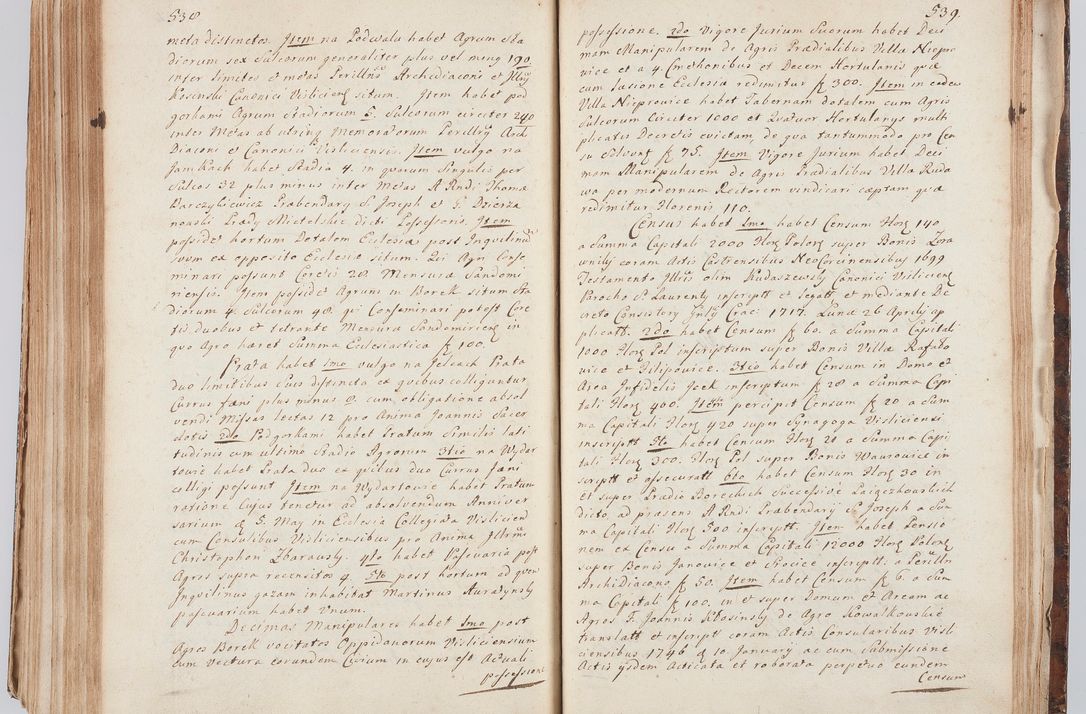 538
meta distinctos. Item na Podwalu habet Agrum Sta
diorum sex Sulcorum generaliter plus vel minus 190
inter limites et metas Perillris Archidiaconi et
Kosinski Canonici Visliciens situm. Item habet pod
gorkami Agrum Stadiorum 5. Sulcorum circiter 240
inter Metas ab utrinq Memoratorum Perillrium Archi
Diaconi et Canonici Visliciensis. Item vulgo na
Jamkach habet Stadia 4. in quorum Singulis per
Sulcos 32 plus minus inter Metas A Rndi Thoma
Warczykiewicz Prabendary S. Joseph et G. Dzierza
nowski Prady Mietelskie dicti Possessoris. Item
possidet hortum Dotalem Ecclesia post Inquilinum
suum ex opposito Ecclesia situm. Qui Agri Conse
minari possunt Coretis 28. Mensura Sandomi
riensis. Item possidet Agrum in Borek situm Sta
diorum 4. Sulcorum 48. qui Conseminari potest Core
tis duobus et tetrante Mensura Sandomiriens in
quo Agro haret Summa Ecclesiastica f 100.
Prata habet 1mo vulgo na Jelcach Prata
duo limitibus suis distincta ex quibus colliguntur
Currus faeni plus minus 8. cum obligatione absol
vendi Missas lectas 12 pro Anima Joannis Sacer
dotis 2do Podgorkami habet Pratum Similis lati
tudinis cum ultimo Stadio Agrorum 3tio na Wydar
towie habet Prata duo ex quibus duo Currus faeni
colligi possunt Item na Wydartowie habet Pratum
ratione Cujus tenetur ad absolvendum Anniver
sarium d 5. May in Ecclesia Collegiata Visliciens
cum Consulibus Visliciensibus pro Anima Illrmi
Christophori Zbarawsky. 4to habet Pascuaria post
Agros supra recensitos 4. 5to post hortum ad quem
Inquilinus gazam inhabitat Martinus
pascuarium habet Unum.
Decimas Manipulares habet 1mo post
Agros Borek vocitatos Oppidanorum Visliciensium
cum Vectura eorundem Civium in cujus est Actuali
possessione
539.
possessione. 2do Vigore Jurium Suorum habet Deci
mam Manipularem de Agris Pradialibus Villa Niepro
wice et a 4 Cmethonibus et Decem Hortulanis qua
cum lusione Ecclesia redimitur f 300. Item in eadem
Villa Nieprowice habet Tabernam dotalem cum Agris
Sulcorum Circiter 1000 et Quatuor Hortulanys mult
plicatis Decretis evictam, de qua tantummodo pro Cen
su solvunt f 75. Item Vigore Jurium habet Deci
mam Manipularem de Agris Pradialibus Villa Ruda
wa per modernum Rectorem vindicari captam qua
redimitur Florenis 110.
Census habet 1mo habet Censum Flor 140
a Summa Capitali 2000 Flor Polon super Bonis Zora
wniki coram Actis Castrensibus NeoCorcinensibus 1699
Testamento Illris olim Rudaszewsky Canonici Visliciens
Parocho S. Laurenty inscriptt et legatt et mediante De
creto Consistory Crac: 1717. Luna 26 Aprilis ap
plicatt. 2do habet Censum f 60. a Summa Capitali
1000 Flor Pol inscriptum super Bonis Villa Rafało
wice et Filipowice. 3tio habet Censum in Domo et
Area Infidelis Joek inscriptum f 28 a Summa Capi
tali Flor 400. Item percipit Censum f 20 a Sum
ma Capitali Flor 420 super Synagoga Visliciensi
inscriptt 5to habet Censum Flor 21 a Summa Capi
tali Flor 300. Flor Pol super Bonis Wawrowice in
scriptt et assecuratt 6to habet Censum Flor 30 in
et super Pradio Boreckich Successive Paigczkowskich
dicto ad prasens A Rndi Prabendary S Joseph a Sum
ma Capitali Flor 500 inscriptt. Item habet Pensio
nem ex Censu a Summa Capitali 12000 Flor Polon
super Bonis Janowice et Krocice inscriptt: a Perillri
ArchiDiacono f 50. Item habet Censum f 6. a Sum
ma Capitali f 100. in et super Domum et Aream ac
Agros F. Joannis Kłosinsky de Agro Kowalkowskie
translatt et inscriptt coram Actis Consularibus Visli
ciensibus 1746 d 10. January ac cum Submissione
Actis ysdem Acticata et roborata perpetuo eundem
Censum